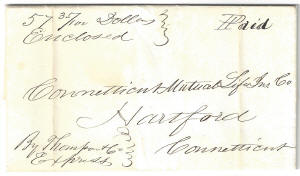 57 35/100 Dollars
Enclosed
Paid
Connecticut Mutual Life Ins Co
Hartford
Connecticut
By Thompson & Co
Express